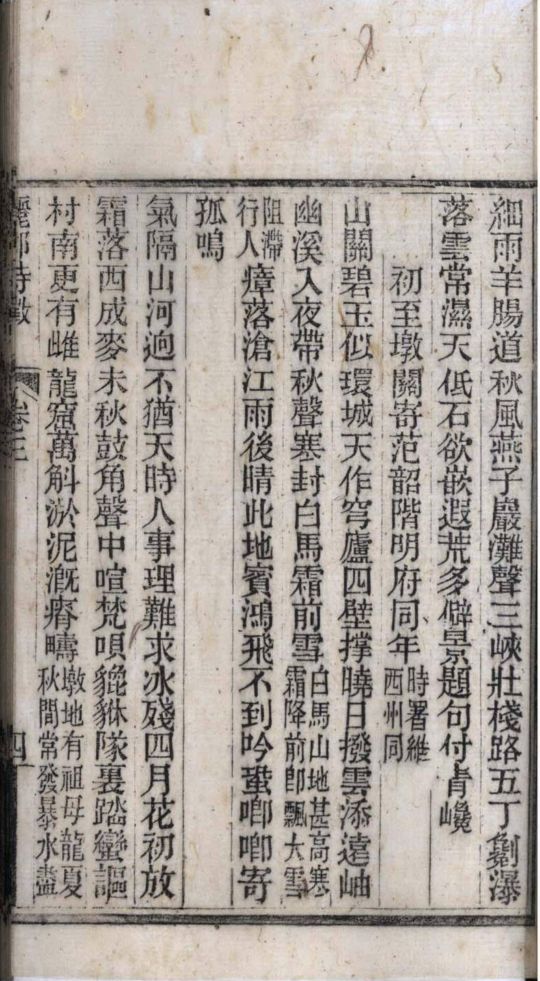 細雨羊腸道秋風燕子巖灘聲三峽壯棧路五丁劖瀑
落雲常濕天低石欲嵌遐荒多僻景題句付青巉
初至墩關寄范韶階明府同年時署維西州同
山關碧玉似環城天作穹廬四壁撑曉日撥雲添遠岫
幽溪入夜帶秋聲塞封白馬霜前雪白馬山地甚高寒霜降前卽飄大雪
阻滯行人瘴落滄江雨後晴此地賓鴻飛不到吟蛩唧唧寄
孤鳴
氣隔山河逈不猶天時人事理難求冰殘四月花初放
霜落西成麥未秋鼓角聲中喧梵唄貔貅隊裏踏蠻謳
村南更有雌龍窟萬斛淤泥漑瘠疇墩地有祖母龍夏秋間常發暴水盡
卷三
四